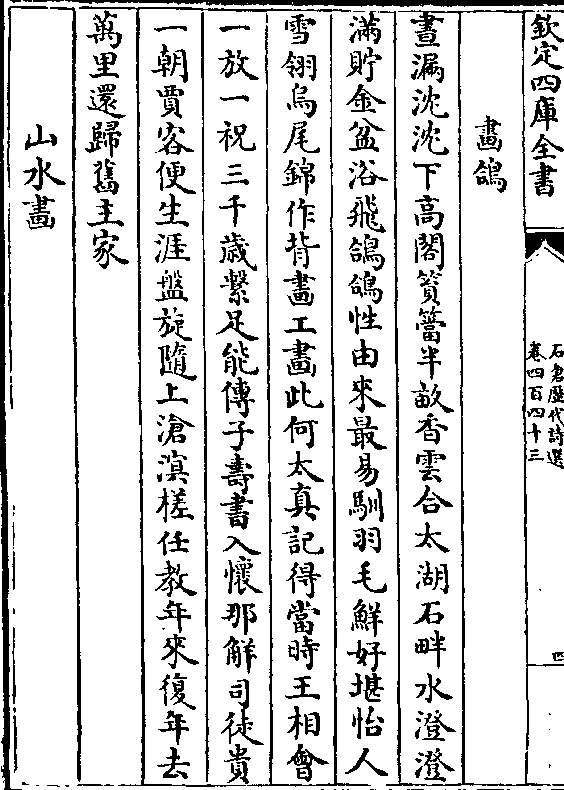 欽定四庫全書
石倉歴代詩選
卷四百四十三
四
畫鴿
晝漏沈沈下高閣篔簹半畝香雲合太湖石畔水澄澄
滿貯金盆浴飛鴿鴿性由來最易馴羽毛鮮好堪怡人
雪翎烏尾錦作背畫工畫此何太真記得當時王相會
一放一祝三千歲繫足能傳子壽書入懷那解司徒貴
一朝賈客便生涯盤旋隨上滄溟槎任教年來復年去
萬里還歸舊主家
山水畫